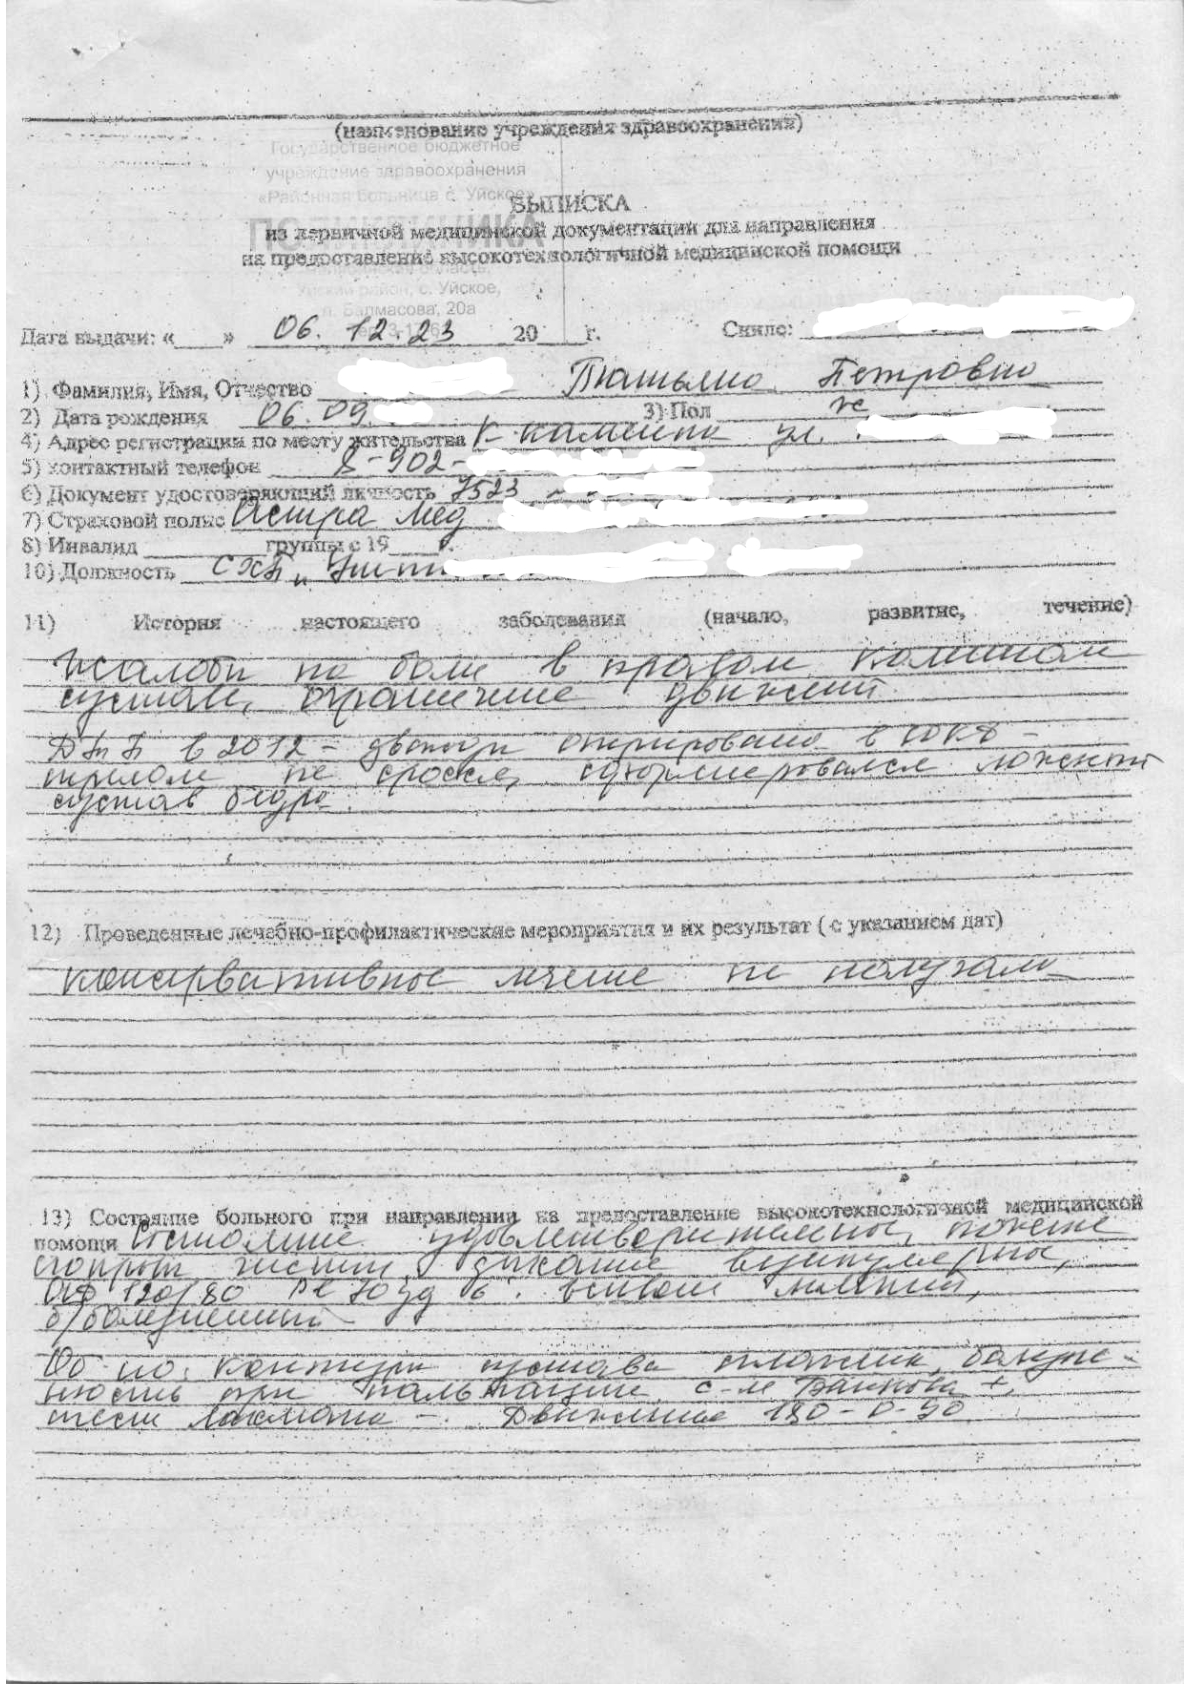 (наименование учреждения здравоохранения)
Государственное бюджетное
учреждение здравоохранения
«Районная больница с. Уйское»
ПОЛИКЛИНИКА
ВЫПИСКА
из первичной медицинской документации для направления
на предоставление высокотехнологичной медицинской помощи
с. Уйское,
Балмасова, 20а
Дата выдачи: «____» 06.12.23 20___г. Снилс:
1) Фамилия, Имя, Отчество Татьяна Петровна
2) Дата рождения 06.09. 3) Пол ж
4) Адрес регистрации по месту жительства ул.
5) контактный телефон 8-902-
6) Документ удостоверяющий личность 7523
7) Страховой полис Астра мед
8) Инвалид ________ группы с 19____г.
10) Должность
11) История настоящего заболевания (начало, развитие, течение)
Жалобы на боли в правом коленном
суставе, ограничение движений
ДТП в 2012 – дважды оперирована в –
перелом не сросся, сформировался ложный
сустав бедра.
12) Проведенные лечебно-профилактические мероприятия и их результат ( с указанием дат)
консервативное лечение не получала
13) Состояние больного при направлении на предоставление высокотехнологичной медицинской
помощи Состояние удовлетворительное,
чистые, дыхание везикулярное,
120/80 Ps 70 уд в' живот мягкий,
б/болезненный
контуры сустава сглажены, болезнен-
ность при пальпации с-м Байкова +,
тест Лахмана –. Движение 180-0-90